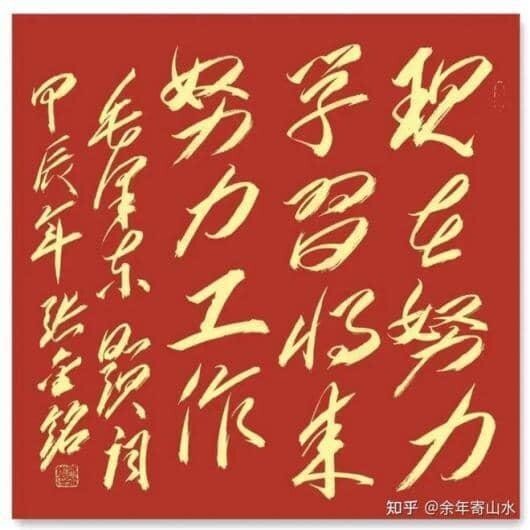 现在努力
学习将来
努力工作
毛泽东题词
甲辰年张金铭
知乎 @余年寄山水